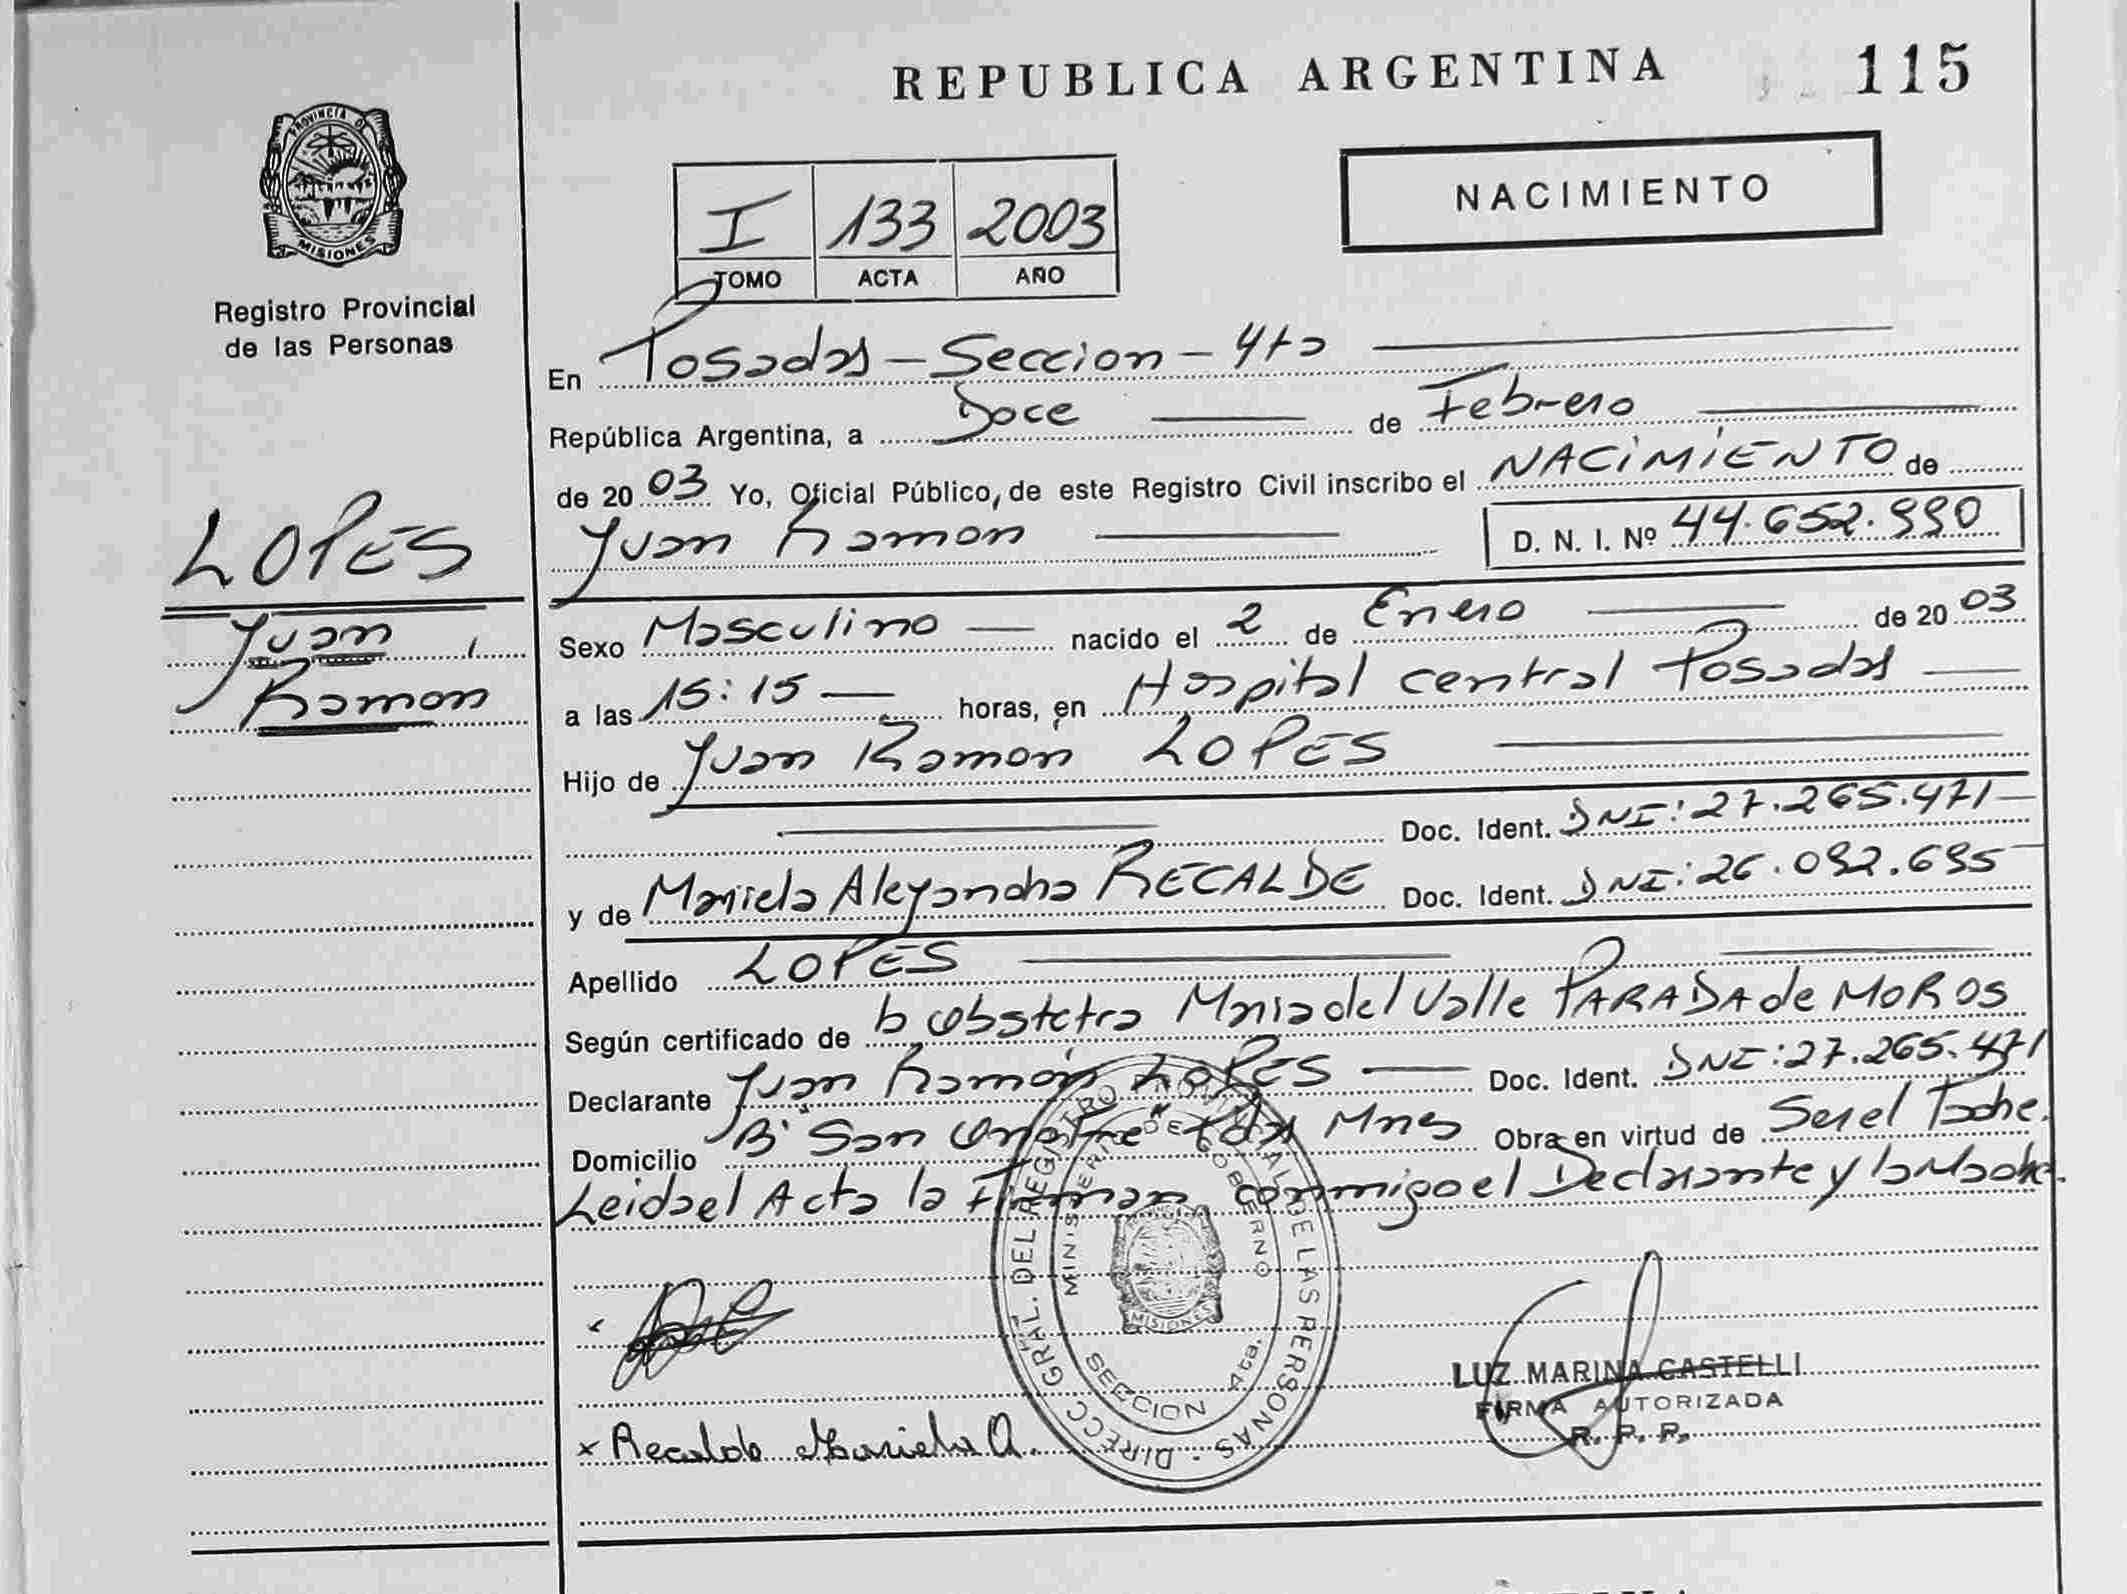 REPUBLICA ARGENTINA 115
PROVINCIA DE
MISIONES
Registro Provincial
de las Personas
NACIMIENTO
I 133 2003
TOMO ACTA AÑO
En Posadas - Seccion - 4ta
República Argentina, a Doce de Febrero
de 20 03 Yo, Oficial Público, de este Registro Civil inscribo el NACIMIENTO de
Juan Ramon D. N. I. Nº 44.652.990
LOPES
Juan
Ramon
Sexo Masculino nacido el 2 de Enero de 20 03
a las 15:15 horas, en Hospital central Posadas
Hijo de Juan Ramon LOPES
Doc. Ident. DNI: 27.265.471
y de Mariela Alejandra RECALDE Doc. Ident. DNI: 26.092.695
Apellido LOPES
Según certificado de la Obstetra Maria del Valle PARADA de MOROS
Declarante Juan Ramón LOPES Doc. Ident. DNI: 27.265.471
Domicilio B° San Onofre Pdas Mnes Obra en virtud de Ser el Padre.
Leida el Acta la Firman conmigo el Declarante y la Madre.
DIRECC. GRAL. DEL REGISTRO PROVINCIAL DE LAS PERSONAS
MINISTERIO DE GOBIERNO
MISIONES
SECCION 4ta.
LUZ MARINA CASTELLI
FIRMA AUTORIZADA
R. P. P.
x Recalde Mariela A.